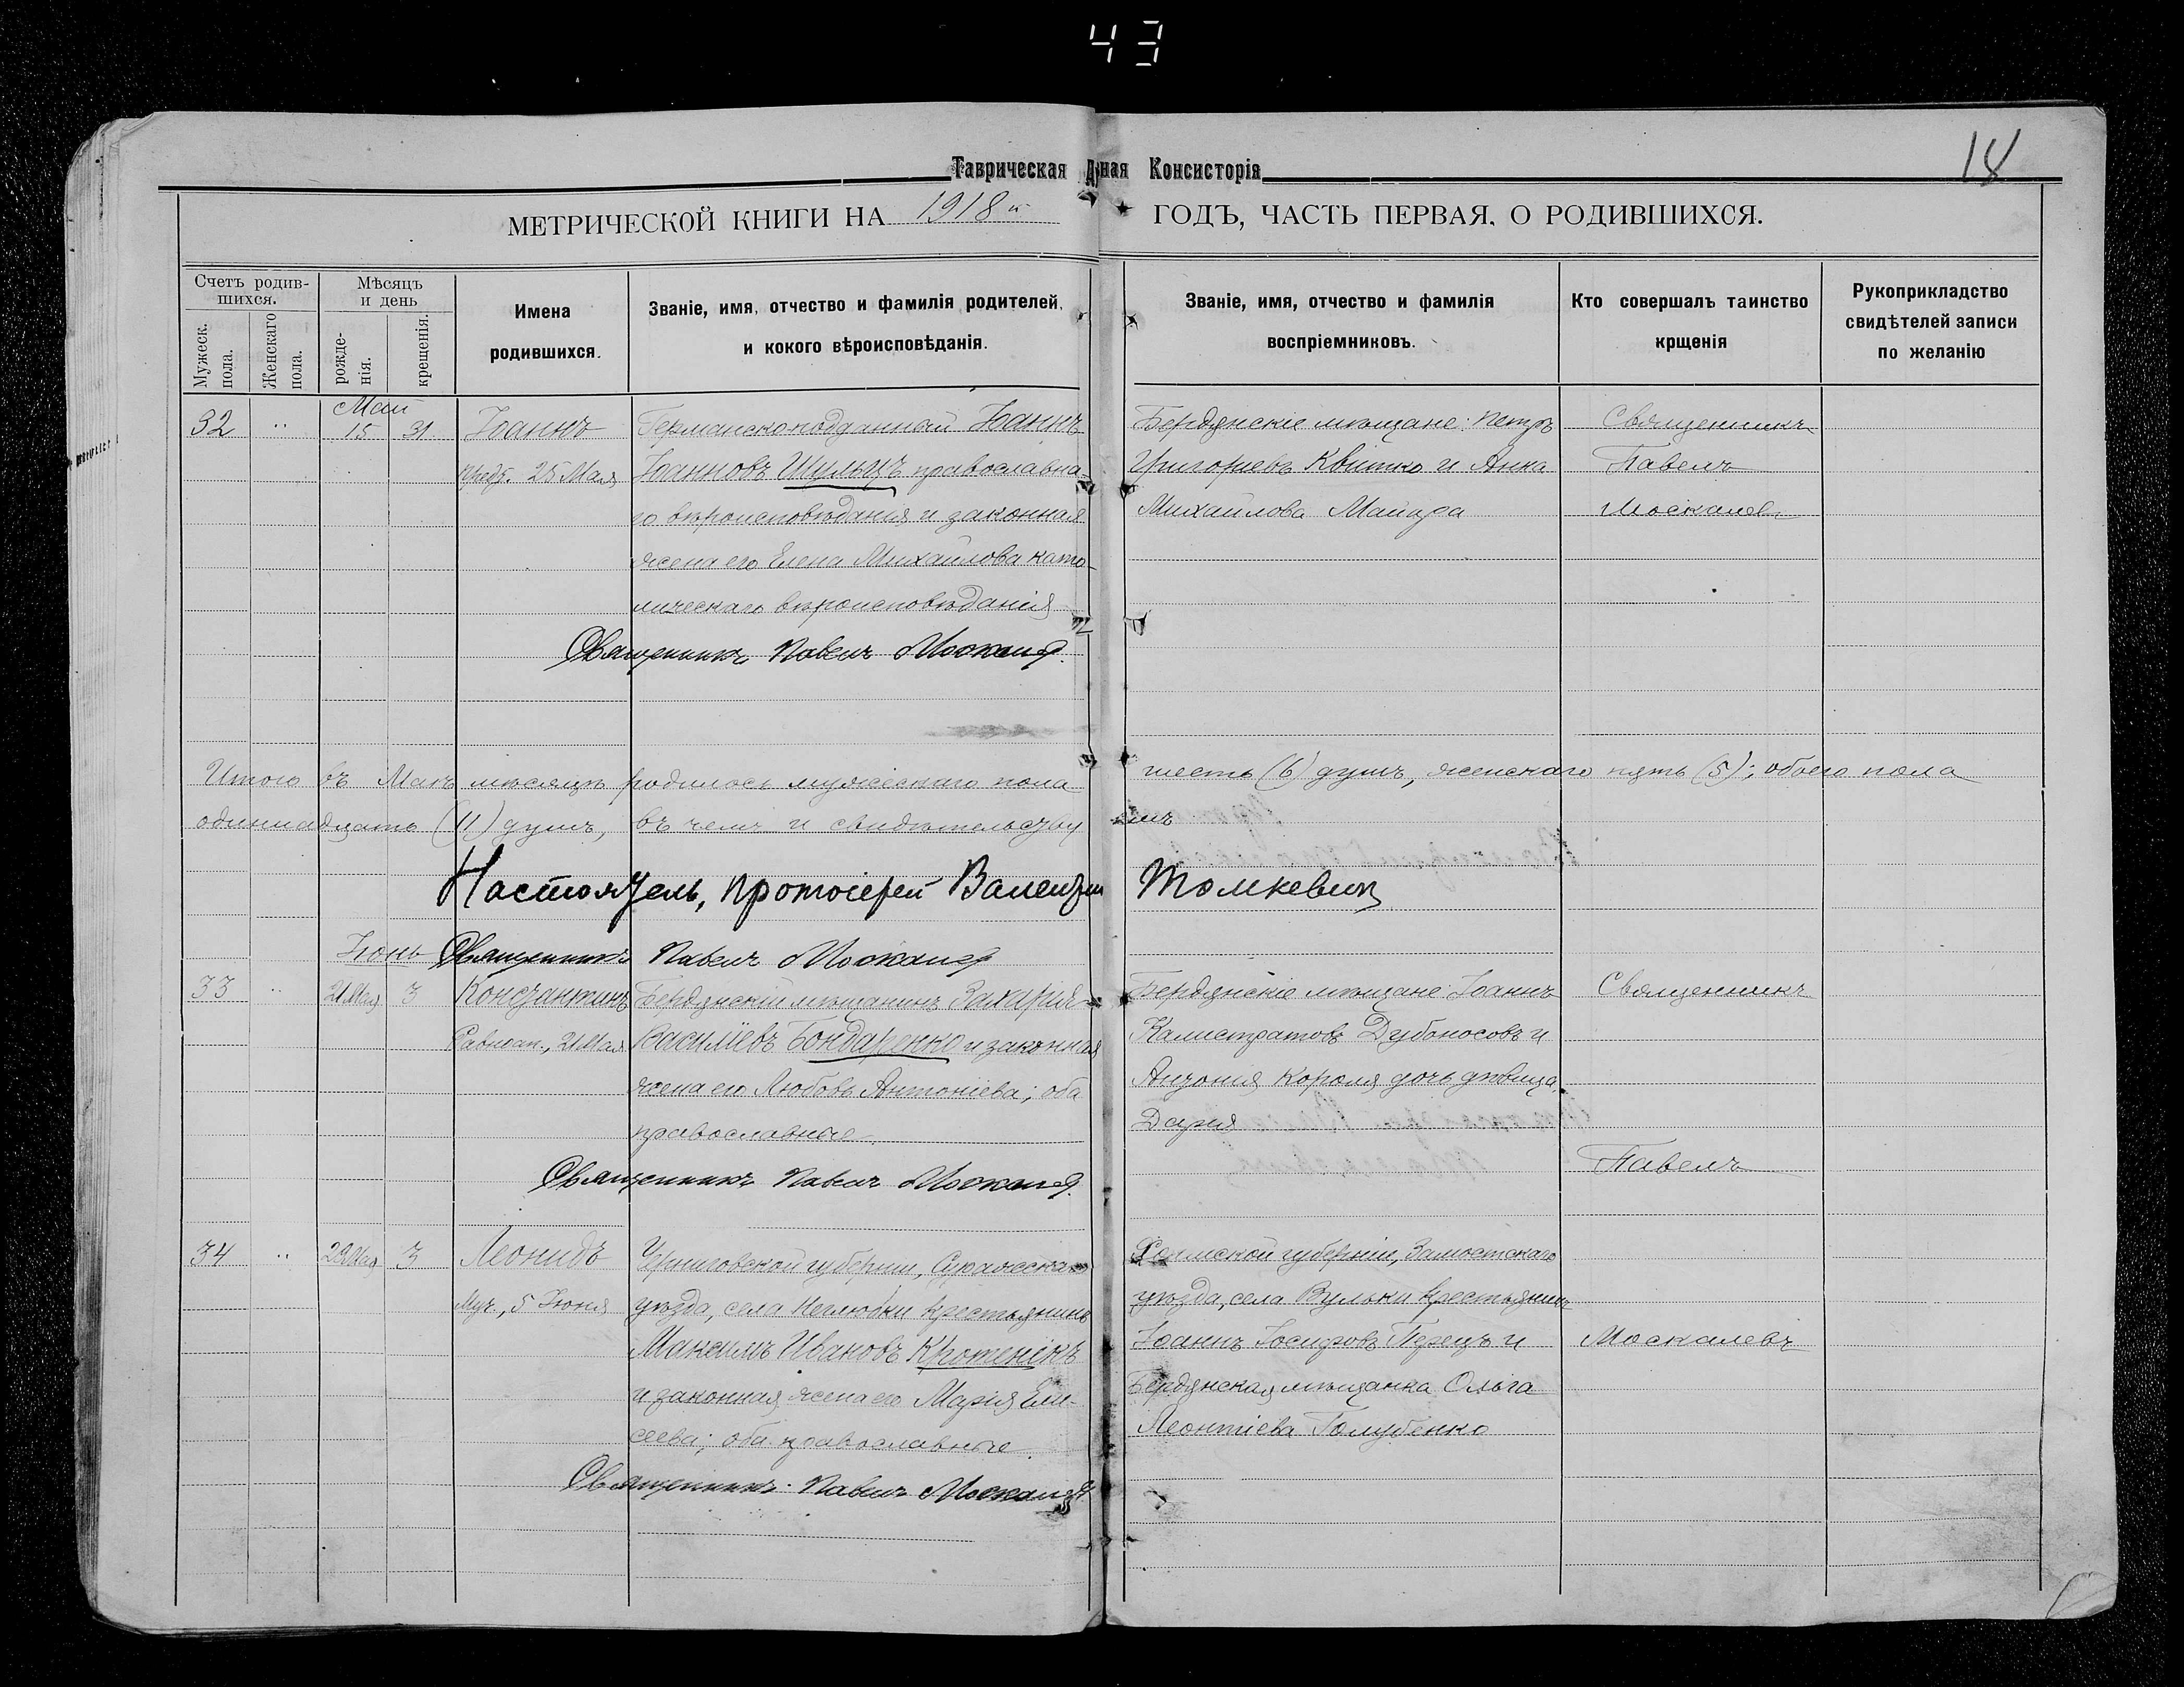 43
18
Таврическая Д ная Консисторія
МЕТРИЧЕСКОЙ КНИГИ НА 1918й ГОДЪ, ЧАСТЬ ПЕРВАЯ, О РОДИВШИХСЯ.
Счетъ родив-
шихся.
Мужеск.
пола.
Женскаго
пола.
Мѣсяцъ
и день
рожде-
нія.
крещенія.
Имена
родившихся.
Званіе, имя, отчество и фамилія родителей,
и кокого вѣроисповѣданія.
Званіе, имя, отчество и фамилія
воспріемниковъ.
Кто совершалъ таинство
крщенія
Рукоприкладство
свидѣтелей записи
по желанію
Май
32 " 15 31 Іоаннъ
предт. 25 Мая
Германско-подданный Іоаннъ
Іоанновъ Шульцъ православна-
го вѣроисповѣданія и законная
жена его Елена Михайлова като-
лическаго вѣроисповѣданія
Бердянскіе мѣщане: Петръ
Григорьевъ Квитко и Анна
Михайлова Мацара
Священникъ
Павелъ
Москалевъ
Священникъ Павелъ Москалев.
Итого въ Маѣ мѣсяцѣ родилось мужескаго пола шесть (6) душъ, женскаго пять (5); обоего пола
одиннадцать (11) душъ, въ чемъ и свидѣтельству емъ
Настоятель, протоіерей Валентин Томкевич
Священникъ Павелъ Москалев
Іюнь
33 " 21 Мая 3 Константинъ
Равноап., 21 Мая
Бердянскій мѣщанинъ Захарія
Василіевъ Бондаренко и законная
жена его Любовь Антоніева; оба
православные.
Бердянскіе мѣщане: Іоаннъ
Калистратовъ Дубоносовъ и
Антонія Короля дочь дѣвица
Дарія
Священникъ
Павелъ
Москалевъ
Священникъ Павелъ Москалев.
34 " 29 Мая 3 Леонидъ
Муч., 5 Іюня
Черниговской губерніи, Суражскаго
уѣзда, села Неглюбки крестьянинъ
Максимъ Ивановъ Кротенокъ
и законная жена его Марія Ели-
сеева; оба православные.
Холмской губерніи, Замостскаго
уѣзда, села Вульки крестьянинъ
Іоаннъ Іосифовъ Перецъ и
Бердянская мѣщанка Ольга
Леонтіева Голубенко
Священникъ Павелъ Москалев